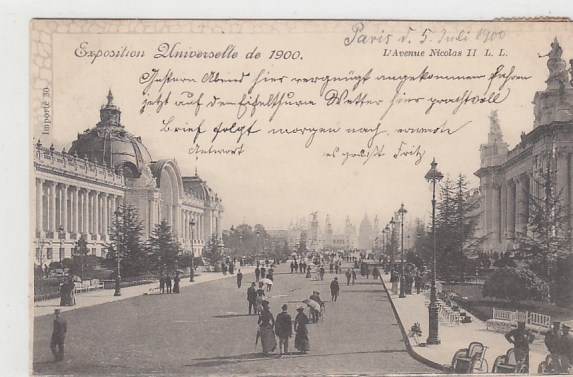 Paris d. 5. Juli 1900
Exposition Universelle de 1900.
L'Avenue Nicolas II L. L.
Gestern Abend hier vergnügt angekommen
jetzt auf dem Eifelthurm Wetter hier prachtvoll
Brief folgt morgen nach, erwarte
Antwort
es grüsst Fritz
Importé 30